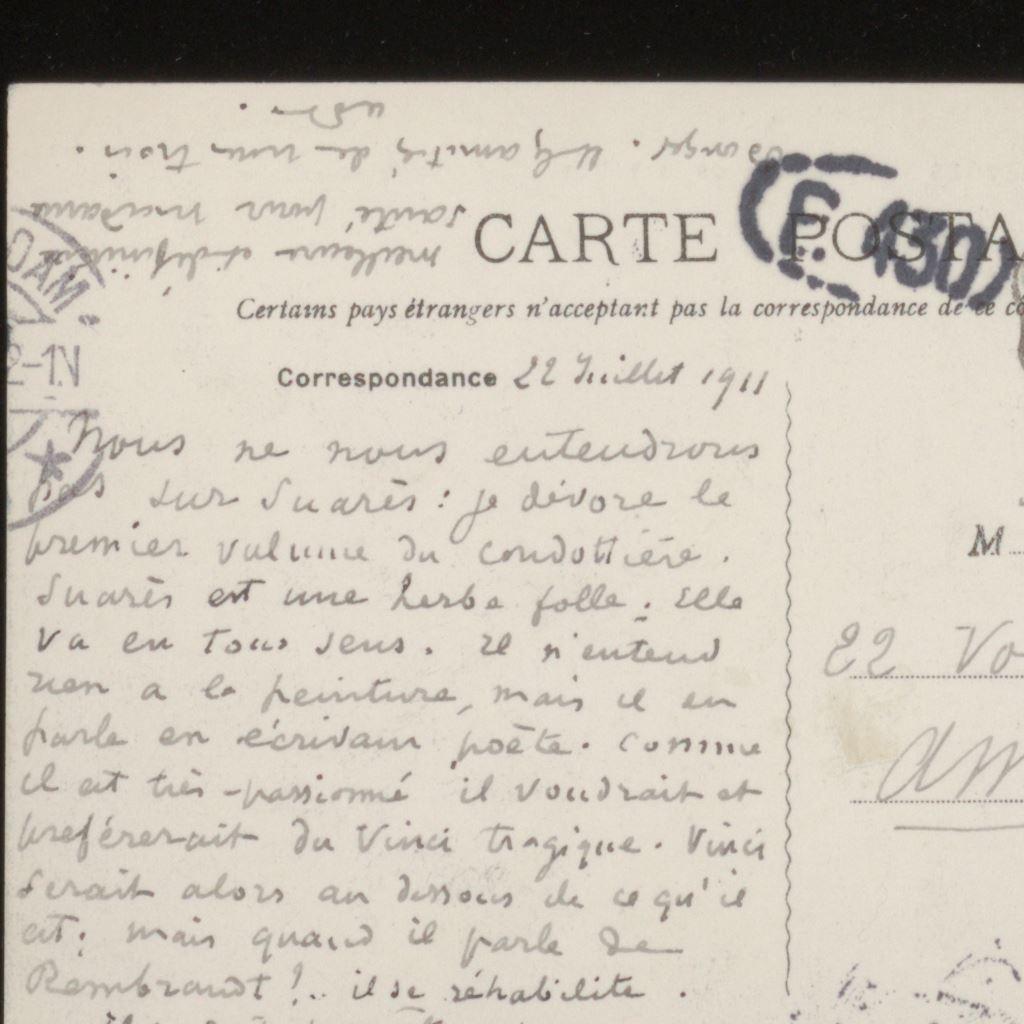 CARTE POSTA
(F. 130)
Certains pays étrangers n'acceptant pas la correspondance de ce co
Correspondance 22 Juillet 1911
Nous ne nous entendrons
pas sur Suarès : je dévore le
premier volume du condottière.
Suarès est une herbe folle. Elle
va en tous sens. Il n'entend
rien a la peinture, mais il en
parle en écrivain poète. Comme
il est très-passionné il voudrait et
préférerait du Vinci tragique. Vinci
serait alors au dessous de ce qu'il
est; mais quand il parle de
Rembrandt !.. il se réhabilite.
meilleure et définitive
santé pour madame
Binger. Mes amitiés de nous trois.
DAM
2-1N
M
22 Vo
Am